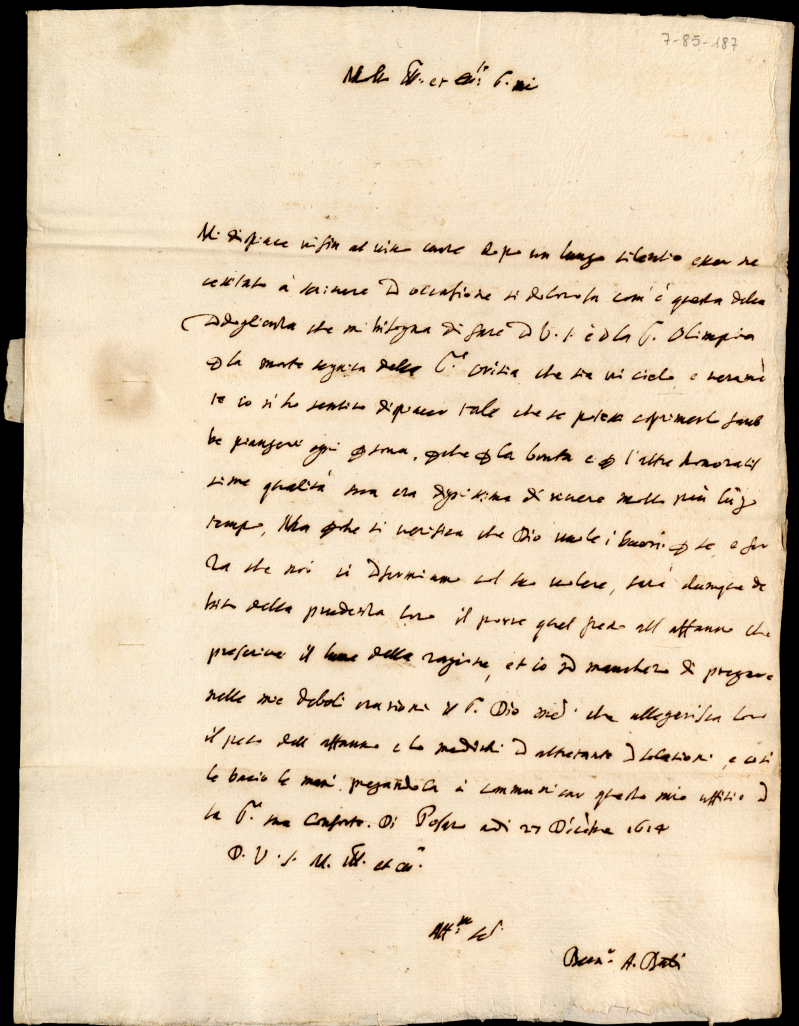 7-85-187
Molto Ill. et S. mi
Mi dispiace infin al vivo cuore dopo un lungo silentio esser ne
cessitato à scrivere occasione si dolorosa com'è questa della
che mi bisogna di fare V. S. è la S. Olimpia
la morte seguita della S.ra che sia in cielo, e verame
te io n'ho sentito dispiacer tale che se potessi esprimerlo fareb
be piangere ogni persona, perche per la bontà e per l'altre honoratis
sime qualità sua era dignissima di vivere molto più lūgo
tempo, Ma perche si verifica che Dio vuole i buoni per se, e for
za che noi ci conformiamo col suo volere, sarà dunque de
bito della prudentia loro il porre quel freno all'affanno che
prescrive il lume della ragione, et io nō mancherò di pregare
nelle mie deboli orationi il S. Dio che allegerisca loro
il peso dell'affanno e lo medichi altretante consolationi, e così
le bacio le mani, pregandola à communicar questo mio uffitio
la S.ra sua Consorte. Di Pesaro adi 27 Dicēbre 1614
D. V. S. M. Ill. et
Aff.mo
A.